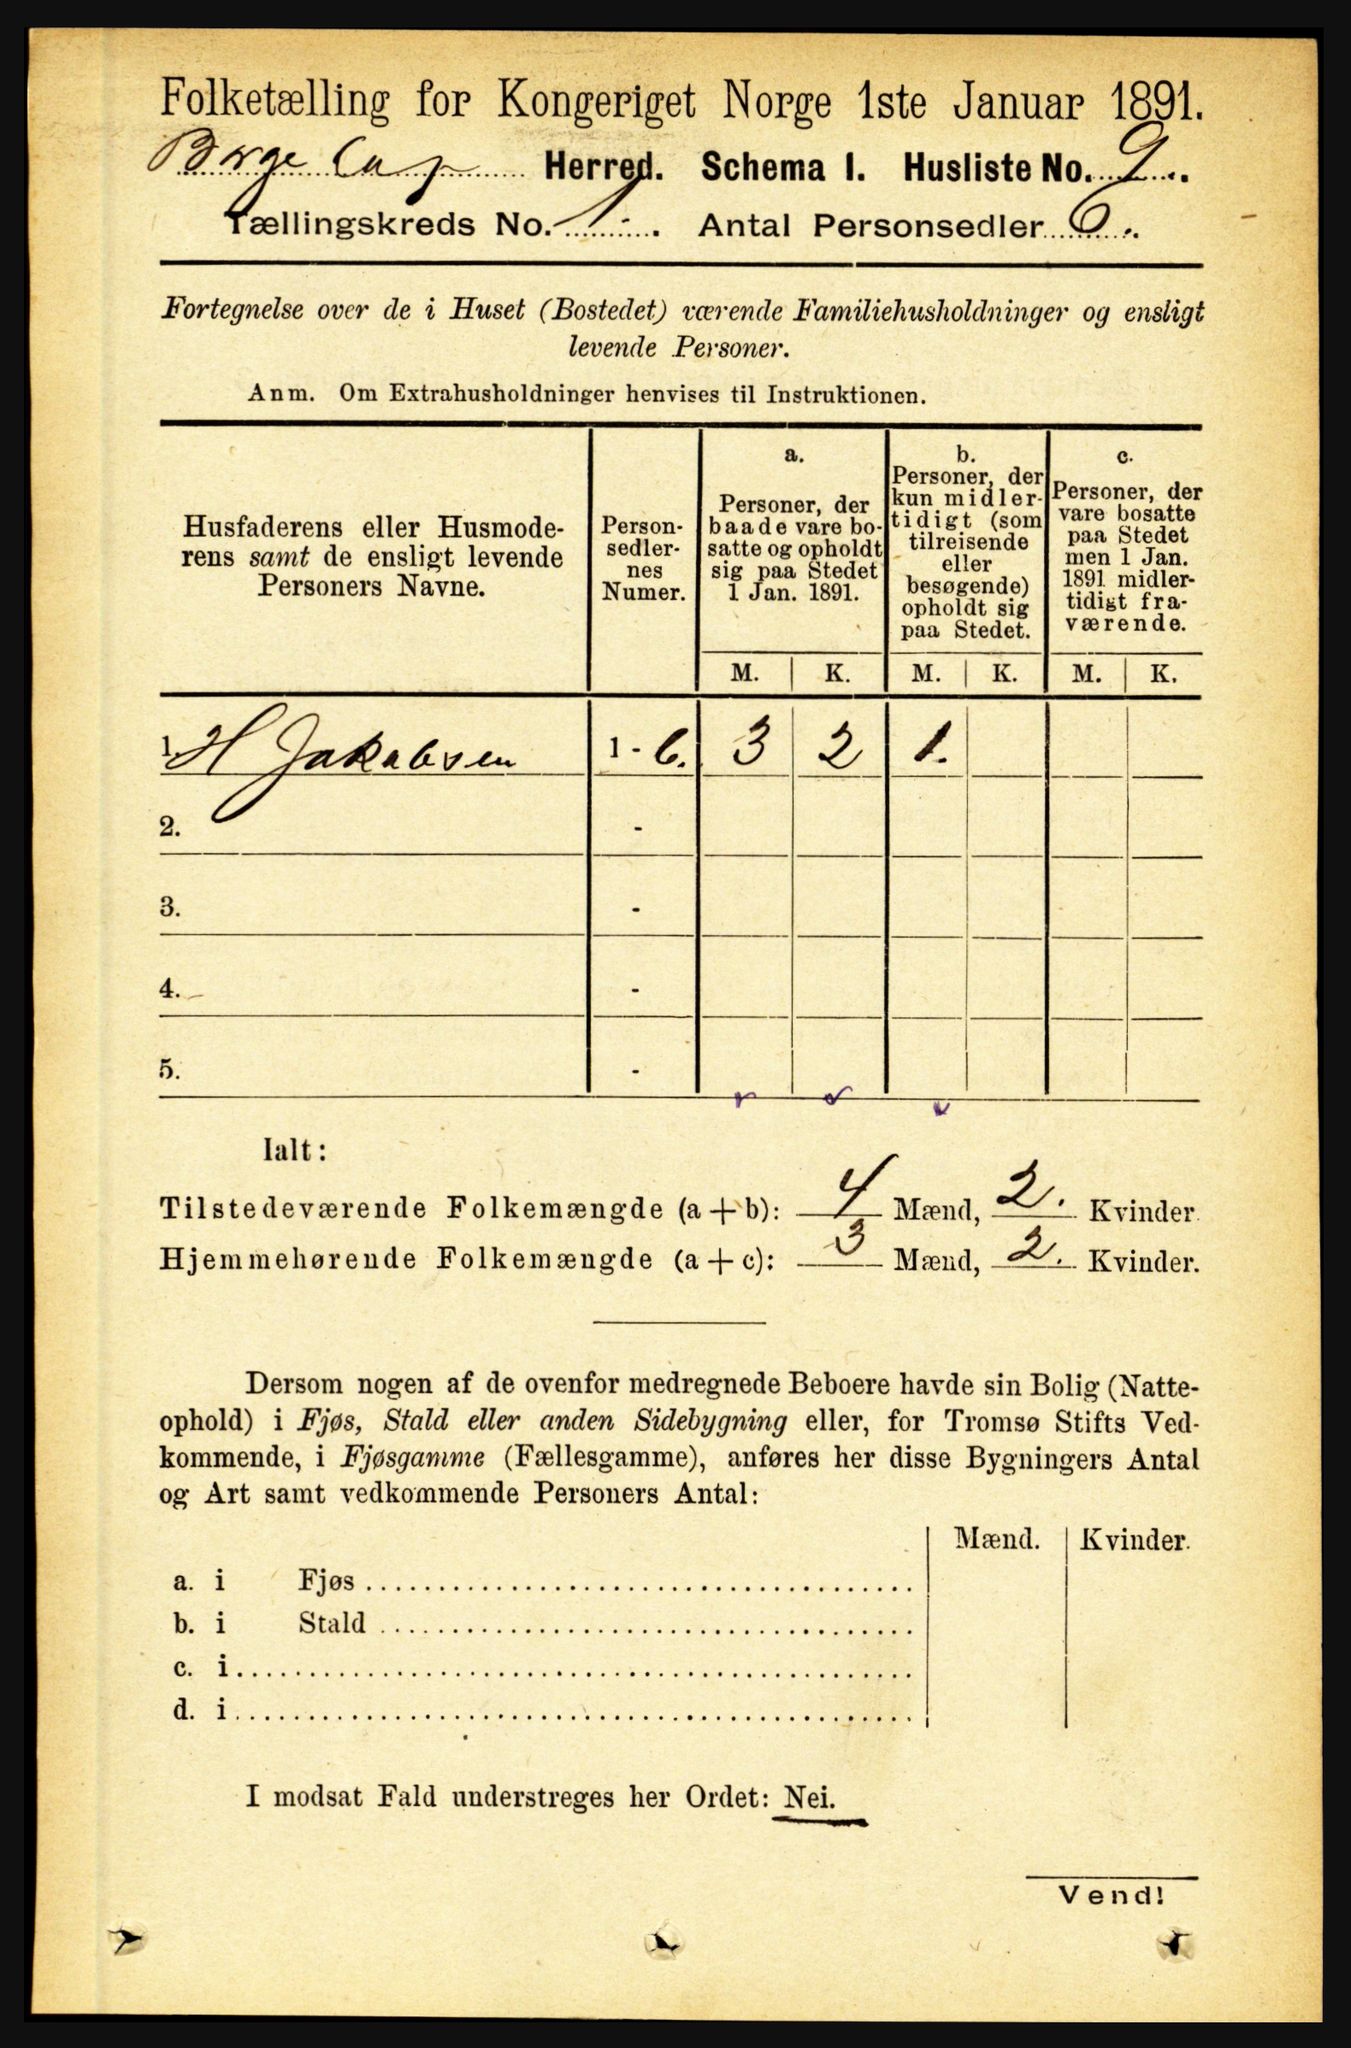 Folketælling for Kongeriget Norge 1ste Januar 1891.
Borge Herred. Schema I. Husliste No. 9.
Tællingskreds No. 1. Antal Personsedler 6.
Fortegnelse over de i Huset (Bostedet) værende Familiehusholdninger og ensligt
levende Personer.
Anm. Om Extrahusholdninger henvises til Instruktionen.
Husfaderens eller Husmode-
rens samt de ensligt levende
Personers Navne.
Person-
sedler-
nes
Numer.
a.
Personer, der
baade vare bo-
satte og opholdt
sig paa Stedet
1 Jan. 1891.
b.
Personer, der
kun midler-
tidigt (som
tilreisende
eller
besøgende)
opholdt sig
paa Stedet.
c.
Personer, der
vare bosatte
paa Stedet
men 1 Jan.
1891 midler-
tidigt fra-
værende.
M. K. M. K. M. K.
1. H Jakobsen 1 - 6. 3 2 1.
2. -
3. -
4. -
5. -
Ialt:
Tilstedeværende Folkemængde (a + b): 4 Mænd, 2. Kvinder.
Hjemmehørende Folkemængde (a + c): 3 Mænd, 2. Kvinder.
Dersom nogen af de ovenfor medregnede Beboere havde sin Bolig (Natte-
ophold) i Fjøs, Stald eller anden Sidebygning eller, for Tromsø Stifts Ved-
kommende, i Fjøsgamme (Fællesgamme), anføres her disse Bygningers Antal
og Art samt vedkommende Personers Antal:
Mænd. Kvinder.
a. i Fjøs
b. i Stald
c. i
d. i
I modsat Fald understreges her Ordet: Nei.
Vend!